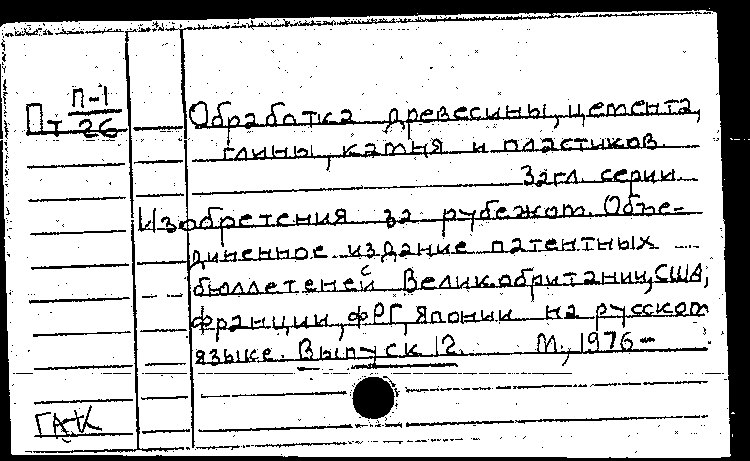 Пт П-1
26
Обработка древесины, цемента,
глины, камня и пластиков.
Загл. серии.
Изобретения за рубежом. Объе-
диненное издание патентных
бюллетеней Великобритании, США,
Франции, ФРГ, Японии на русском
языке. Выпуск 12. М., 1976-
ГАК